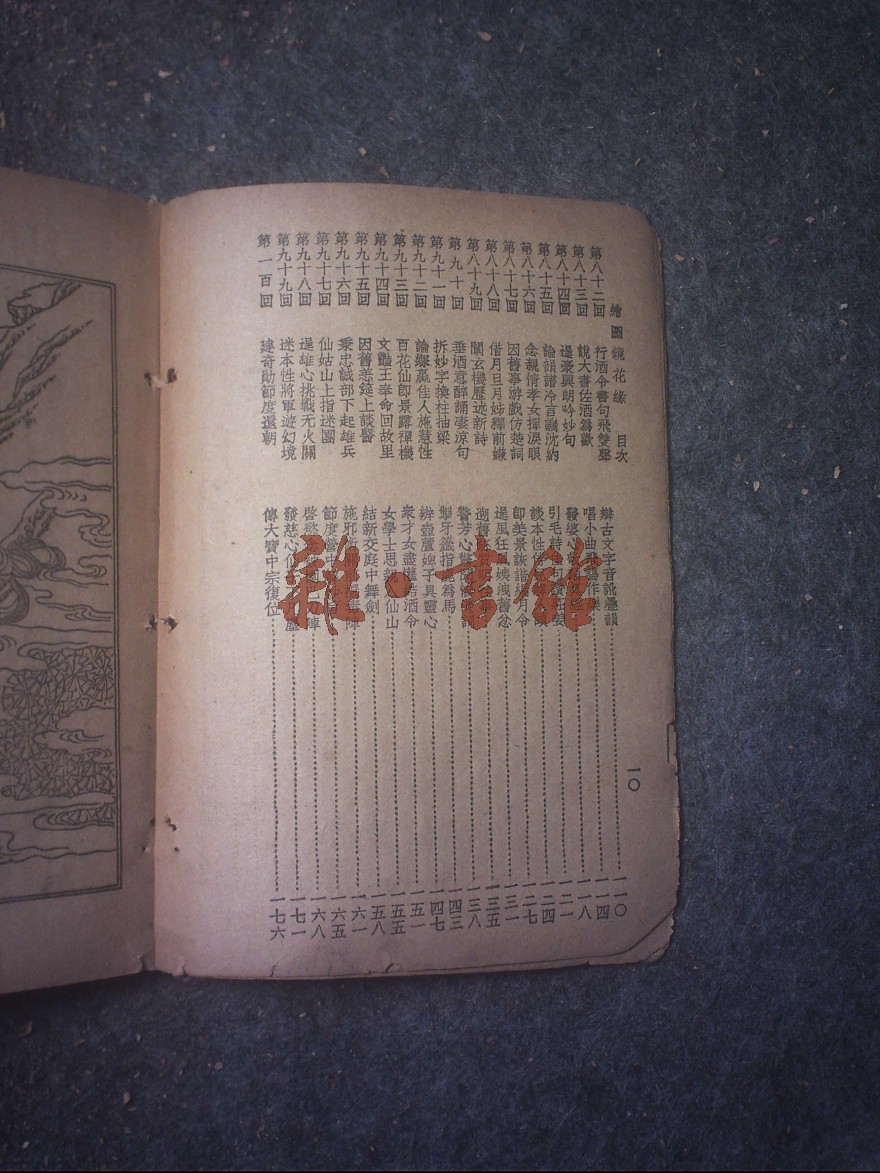 繪圖鏡花緣 目次 一〇
第八十二回 行酒令書句飛雙聲 辯古文字音訛疊韻 一一〇
第八十三回 說大書佐酒爲歡 唱小曲 作樂 一一四
第八十四回 逞豪興 吟妙句 發婆心 一一八
第八十五回 論韻譜冷言譏沈約 引毛詩 莊姜 一二一
第八十六回 念親情孝女揮淚眼 談本性 一二四
第八十七回 因舊事游戲仿楚詞 即美景詼諧編月令 一二七
第八十八回 借月旦月姊釋前嫌 逞風狂風姨洩舊忿 一三一
第八十九回 闡玄機歷述新詩 溯舊 一三五
第九十回 乘酒意醉誦淒涼句 警芳心驚 一三八
第九十一回 拆妙字換柱抽梁 掣牙籤指鹿爲馬 一四三
第九十二回 論果蠃佳人施慧性 辨壺蘆婢子具靈心 一四七
第九十三回 百花仙即景露禪機 衆才女盡歡結酒令 一五一
第九十四回 文豔王奉命回故里 女學士思親入仙山 一五五
第九十五回 因舊恙筵上談醫 結新交庭中舞劍 一五八
第九十六回 秉忠誠部下起雄兵 施邪術 陣 一六一
第九十七回 仙姑山上指迷團 節度營中 一六五
第九十八回 逞雄心挑戰无火關 啓慾 陣 一六八
第九十九回 迷本性將軍遊幻境 發慈心仙 塵 一七一
第一百回 建奇勛節度還朝 傳大寶中宗復位 一七六
雜·書館